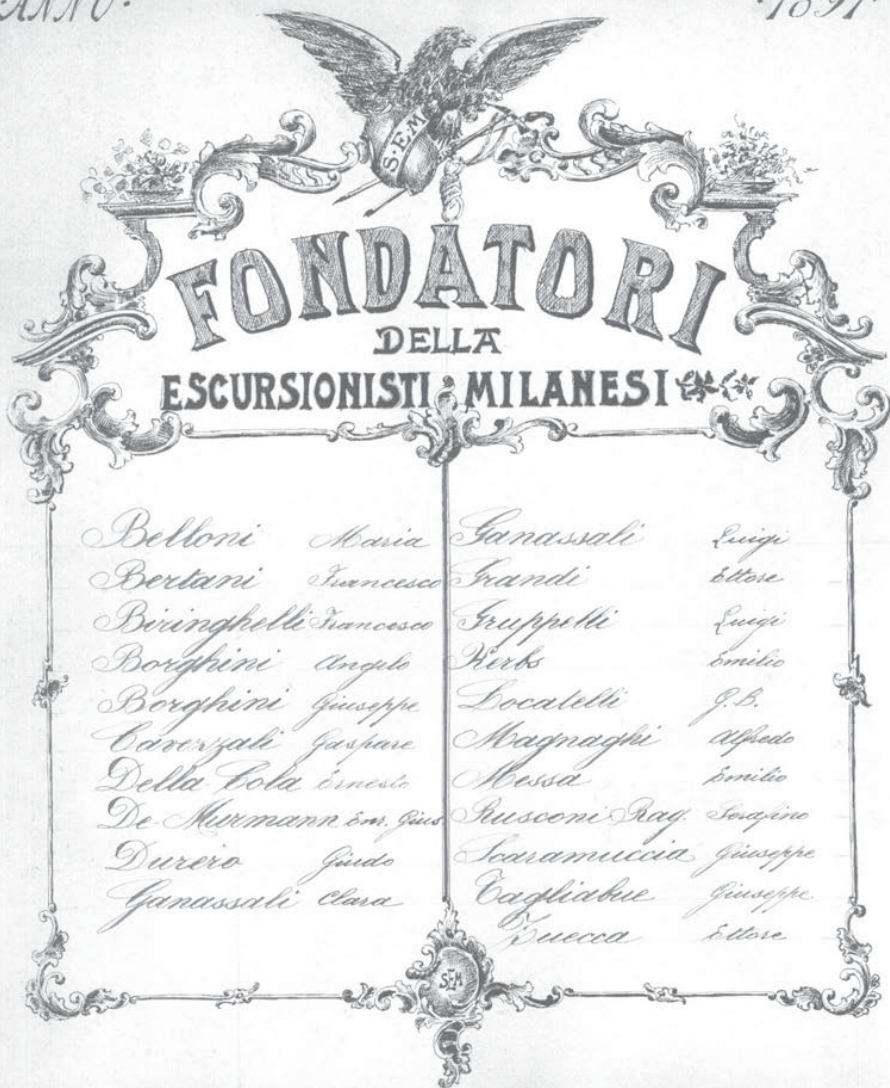 ANNO. 1891
S.E.M
FONDATORI
DELLA
ESCURSIONISTI MILANESI
Belloni Maria
Bertani Francesco
Biringhelli Francesco
Borghini Angelo
Borghini Giuseppe
Caverzali Gaspare
Della Cola Ernesto
De Murmann Enr. Gius
Durero Guido
Ganassali Clara
Ganassali Luigi
Grandi Ettore
Gruppelli Luigi
Kerbs Emilio
Locatelli G.B.
Magnaghi Alfredo
Messa Emilio
Rusconi Rag. Serafino
Scaramuccia Giuseppe
Tagliabue Giuseppe
Zuecca Ettore
SEM